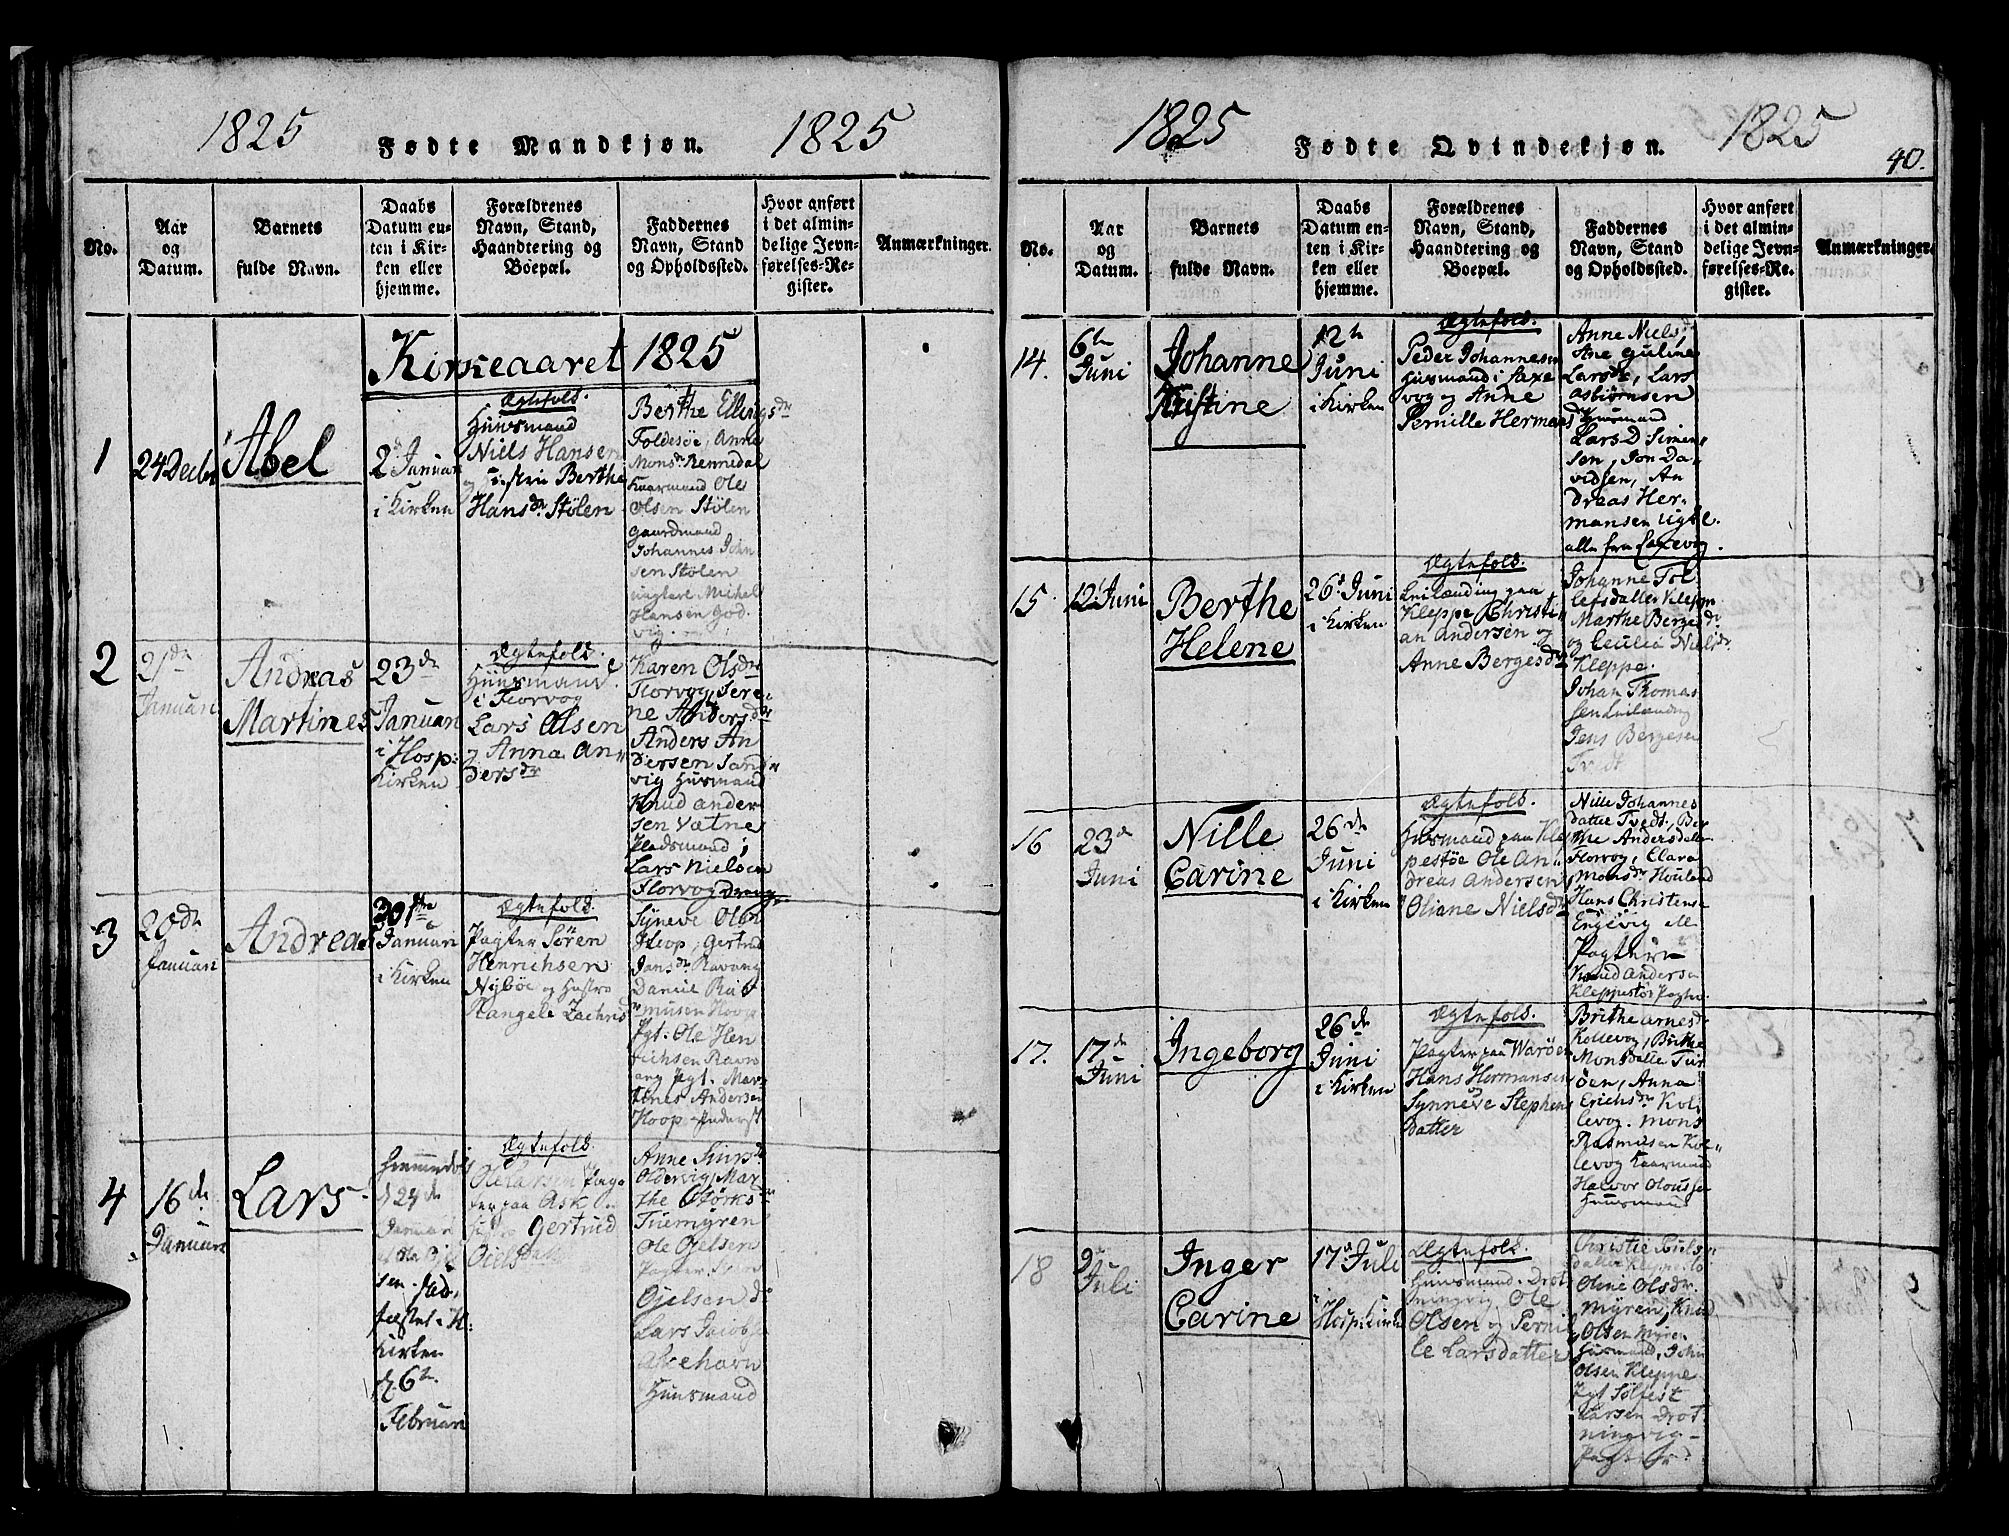 1825
Fødte Mandkjøn.
1825
No.
Aar
og
Datum.
Barnets
fulde Navn.
Daabs
Datum en-
ten i Kir-
ken eller
hjemme.
Forældrenes
Navn, Stand,
Haandtering og
Boepæl.
Faddernes
Navn, Stand
og Opholdssted.
Hvor anført
i det almin-
delige Jevn-
førelses-Re-
gister.
Anmærkninger.
Kirkeaaret 1825
1
24 Decbr
Abel
2d Januari
i Kirken
Ægtefold.
Huusmand
Niels Hansen
og Hustru Berthe
Hansdr Stølen
Berthe Ellingsdr
Foldesøe, Anne
Monsdr Rennedal
Kaarmand Ole
Olsen Stølen
Gaardmand
Johannes John
sen Stølen
ungkarl Michel
Hansen God
vig.
2
21de
Januari
Andreas
Martines
23de
Januari
i Hosp:
Kirken
Ægtefold.
Huusmand
i Florvog
Lars Olsen
og Anna An
dersdr
Karen Olsdr
Florvog, Sere-
ne Andersdr
Anders An
dersen Sand
vig Huusmand
Knud Ander
sen Vatne
Pladsmand,
Lars Nielsen
Florvog dreng
3
20de
Januari
Andreas
30te
Januari
i Kirken
Ægtefold.
Pagter Søren
Henrichsen
Nybøe og Hustro
Rangele Zachris
Syneve Olsdr
Hop, Gertrud
Jansdr Ravang
Daniel Ras
musen Hoop
Pgt. Ole Hen
richsen Ravn
ang Pgt. Mar
tines Andersen
Hoop
4
16de
Januari
Lars
Hjemmedøbt
d 24de
Januari
sen. Stad,
fæstet i K.
Kirken
d. 6te
Februari
Ægtefold.
Ole Larsen Pag-
ter paa Ask
Hustro Gertrud
Oielsdatter
Anne
Oldervig, Mar
the Størksdr
Tuemyren
Ole Ojelsen
Pagter
Ojelsen do
Lars Jacobs
Akehavn
Huusmand
1825
Fødte Qvindekjøn.
1825
40.
No.
Aar
og
Datum.
Barnets
fulde Navn.
Daabs
Datum en-
ten i Kir-
ken eller
hjemme.
Forældrenes
Navn, Stand,
Haandtering og
Boepæl.
Faddernes
Navn, Stand
og Opholdssted.
Hvor anført
i det almin-
delige Jevn-
førelses-Re-
gister.
Anmærkninger.
14.
6te
Juni
Johanne
Kristine
12te
Juni
i Kirken
Ægtefold.
Peder Johannesen
Huusmand i Saxe
vog og Anne
Pernille Hermans
Anne Nielsdr
Ane Guline
Larsdr, Lars
Asbiørnsen
Huusmand
Lars D Simen
sen, Jon Da
vidsen, An
dreas Her-
mansen ugte.
alle fra Saxevig.
15.
12 Juni
Berthe
Helene
26de Juni
i Kirken
Ægtefold.
Leilænding paa
Kleppe Christi
an Andersen og
Anne Bergesdr
Johanne Tol
lefsdatter Kleppe
Marthe Bergesdr
og Cecilia Nielsdr
Kleppe.
Johan Thomas
sen Leilænding
Jens Bergesen
Tvedt
16
23de
Juni
Nille
Carine
26de
Juni
i Kirken
Ægtefold.
Huusmand paa Kle
pestøe Ole An-
dreas Andersen
Oliane Nielsdr
Nille Johannes
datter Tvedt, Ber
the Andersdatter
Florvog, Clara
Monsdr Houland
Hans Christens
Engevig
Pagtere
Knud Andersen
Kleppestøe Pagter
17.
17de
Juni
Ingeborg
26de
Juni
i Kirken
Ægtefold.
Pagter paa Warøen
Hans Hermansen
Synneve Stephens
datter
Brithe Arnesdr
Kollevog, Brithe
Monsdatter Tur
øen, Anna
Erichsdr Kol
levog. Mons
Rasmusen Kol-
levog Kaarmand
Halvor Olousen
Huusmand
18
9de
Juli
Inger
Carine
17de Juli
Hosp: Kirke
Ægtefold.
Huusmand. Drot
ningvig Ole
Olsen og Pernil
le Larsdatter
Christie Niels
datter Kleppestø
Oline Olsdr
Myren, Knud
Olsen Myren
Huusmand, John
Olsen Kleppe
Pgt Sølfest
Larsen Drot
ningvig
Pagter